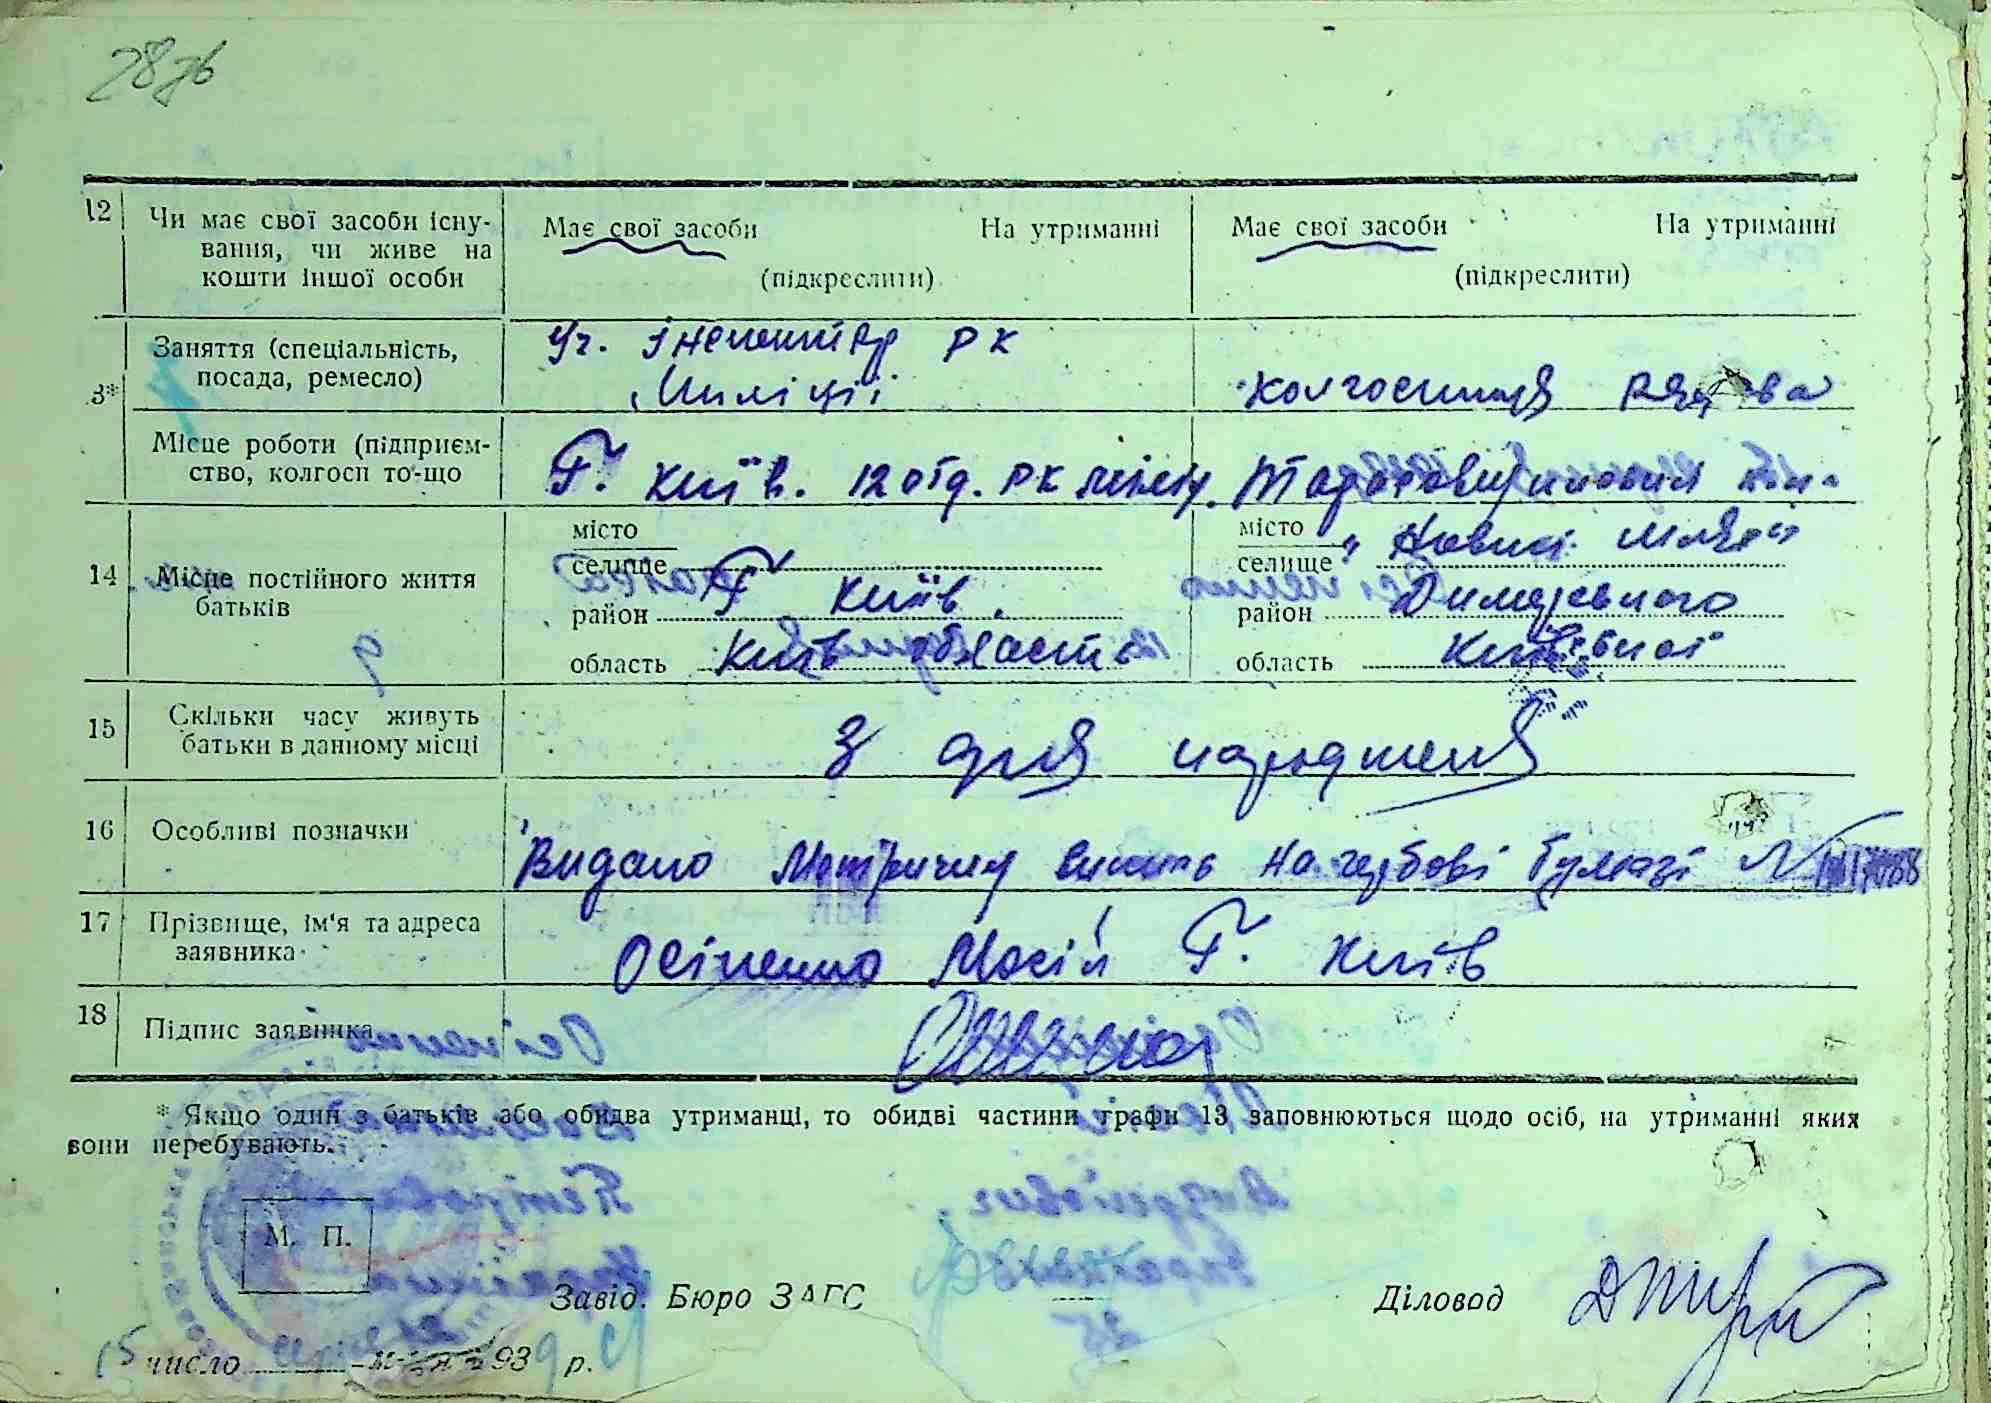 28зв
12 Чи має свої засоби існу-
вання, чи живе на
кошти іншої особи
Має свої засоби На утриманні
(підкреслити)
Має свої засоби На утриманні
(підкреслити)
3* Заняття (спеціальність,
посада, ремесло)
Уч. РК
Миліції
Місце роботи (підприєм-
ство, колгосп то-що
Г. Київ. 12 отд. РК
14 Місце постійного життя
батьків
місто
селище
район Г. Київ.
область Київ область
місто
селище
район
область Київської
15 Скільки часу живуть
батьки в данному місці
З дня народженя
16 Особливі позначки
Видано Метричну на гербові бумазі №
17 Прізвище, ім'я та адреса
заявника
Осіпенко Г. Київ
18 Підпис заявника
* Якщо один з батьків або обидва утриманці, то обидві частини графи 13 заповнюються щодо осіб, на утриманні яких
вони перебувають.
М. П.
Завід. Бюро ЗАГС
Діловод
15 число 1939 р.